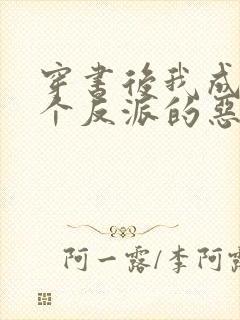 穿書後我成
个反派的惡
阿一露/李阿露